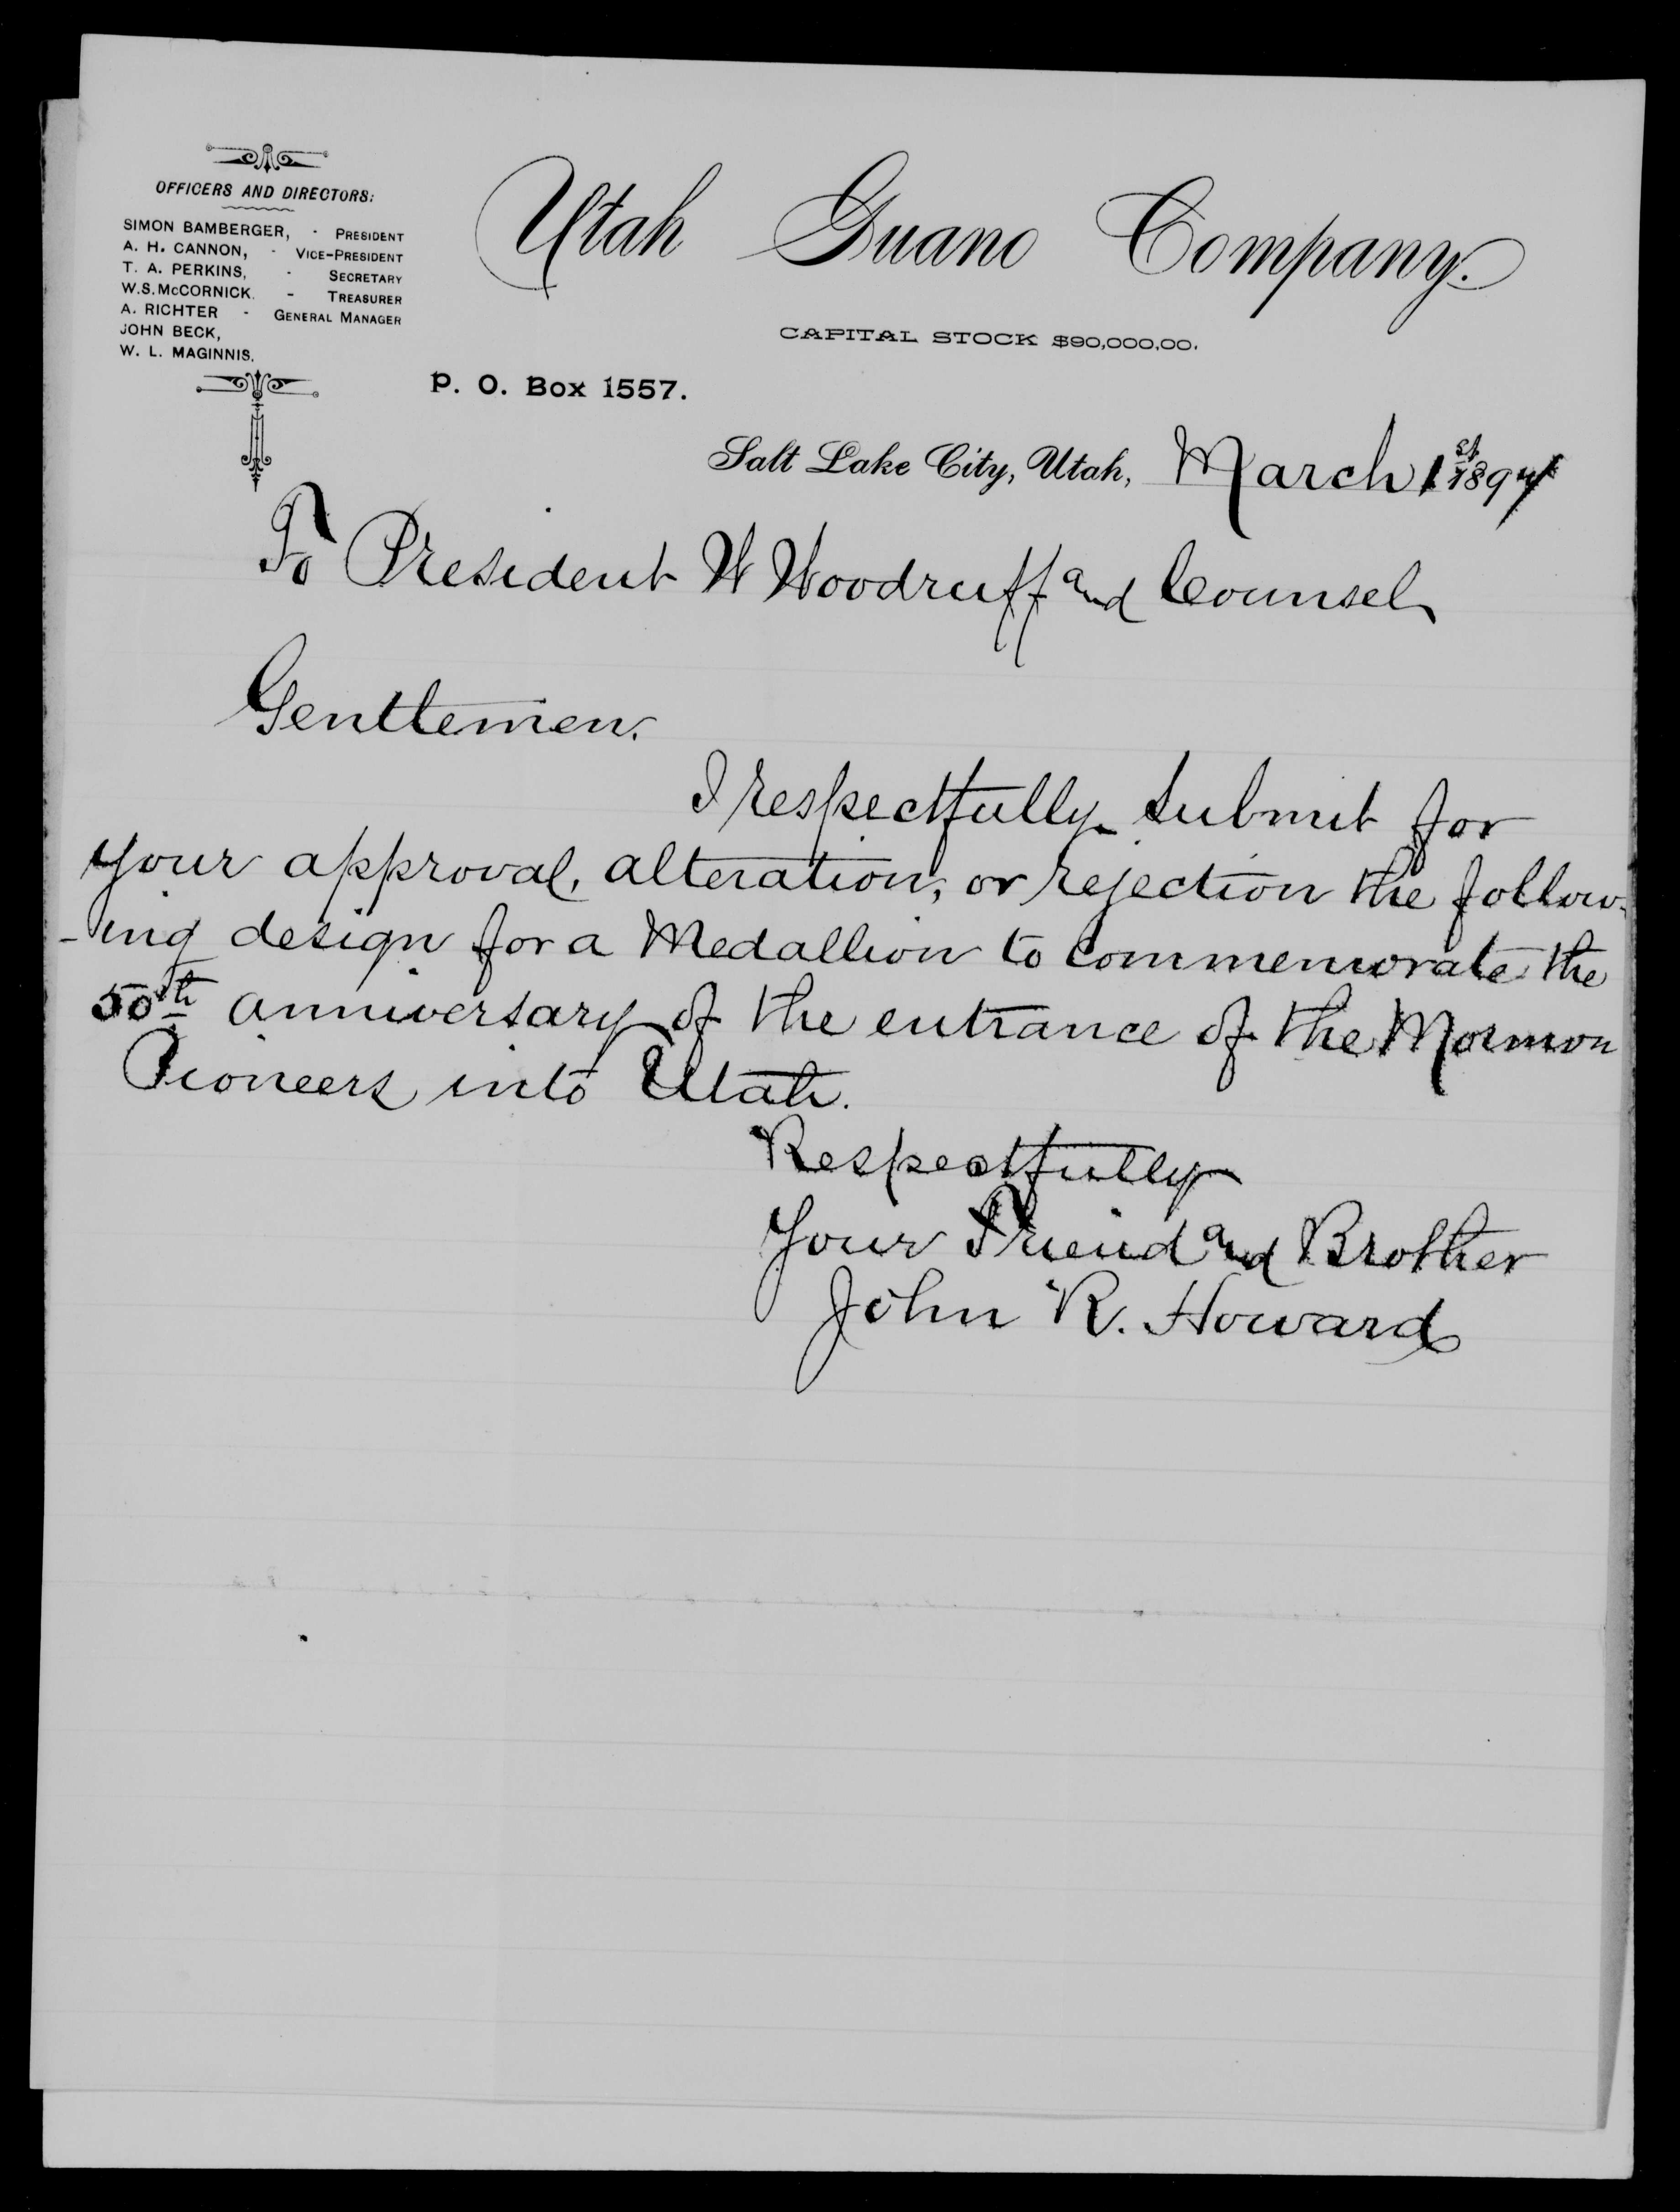 OFFICERS AND DIRECTORS:
SIMON BAMBERGER, - PRESIDENT
A. H. CANNON, - VICE-PRESIDENT
T. A. PERKINS, - SECRETARY
W.S. McCORNICK. - TREASURER
A. RICHTER - GENERAL MANAGER
JOHN BECK,
W. L. MAGINNIS.
Utah Guano Company.
CAPITAL STOCK $90,000.00.
P. O. Box 1557.
Salt Lake City, Utah, March 1st 1894
To President W Woodruff and Counsel
Gentlemen.
I respectfully submit for
your approval, alteration, or rejection the follow-
-ing design for a Medallion to commemorate the
50th anniversary of the entrance of the Mormon
Pioneers into Utah.
Respectfully
Your Friend and Brother
John R. Howard